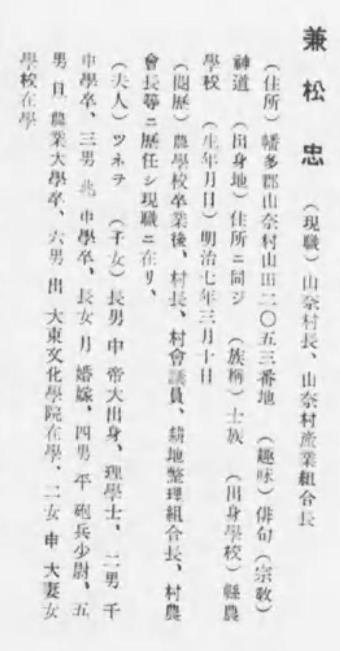 兼松忠 (現職)山奈村長、山奈村產業組合長
(住所)幡多郡山奈村山田二〇五三番地 (趣味)俳句(宗敎)
神道 (出身地)住所ニ同ジ (族稱)士族 (出身學校)縣農
學校 (生年月日)明治七年三月十日
(閱歷)農學校卒業後、村長、村會議員、耕地整理組合長、村農
會長等ニ歷任シ現職ニ在リ、
(夫人)ツネヲ (子女)長男 中 帝大出身、理學士、二男 千
中學卒、三男 兆 中學卒、長女 月 婚嫁、四男 平 砲兵少尉、五
男 且 農業大學卒、六男 出 大東文化學院在學、二女 申 大妻女
學校在學